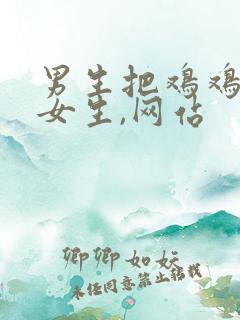 男生把鸡鸡
女生,网站
卿卿如妘
未经同意禁止转载